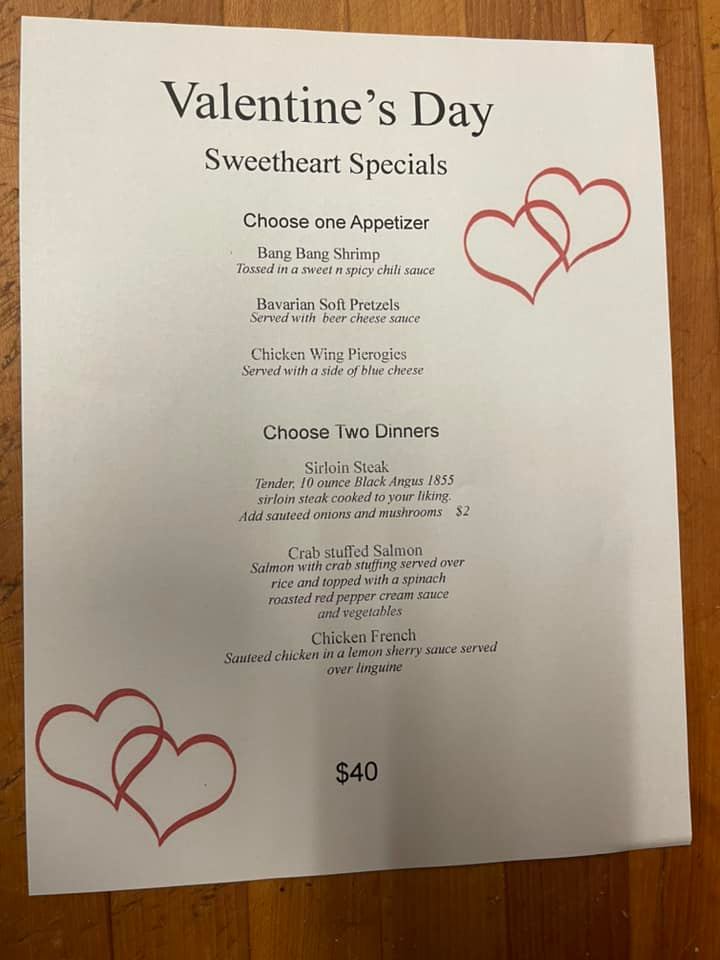 Valentine's Day
Sweetheart Specials
Choose one Appetizer
Bang Bang Shrimp
Tossed in a sweet n spicy chili sauce
Bavarian Soft Pretzels
Served with beer cheese sauce
Chicken Wing Pierogies
Served with a side of blue cheese
Choose Two Dinners
Sirloin Steak
Tender, 10 ounce Black Angus 1855
sirloin steak cooked to your liking.
Add sauteed onions and mushrooms $2
Crab stuffed Salmon
Salmon with crab stuffing served over
rice and topped with a spinach
roasted red pepper cream sauce
and vegetables
Chicken French
Sauteed chicken in a lemon sherry sauce served
over linguine
$40